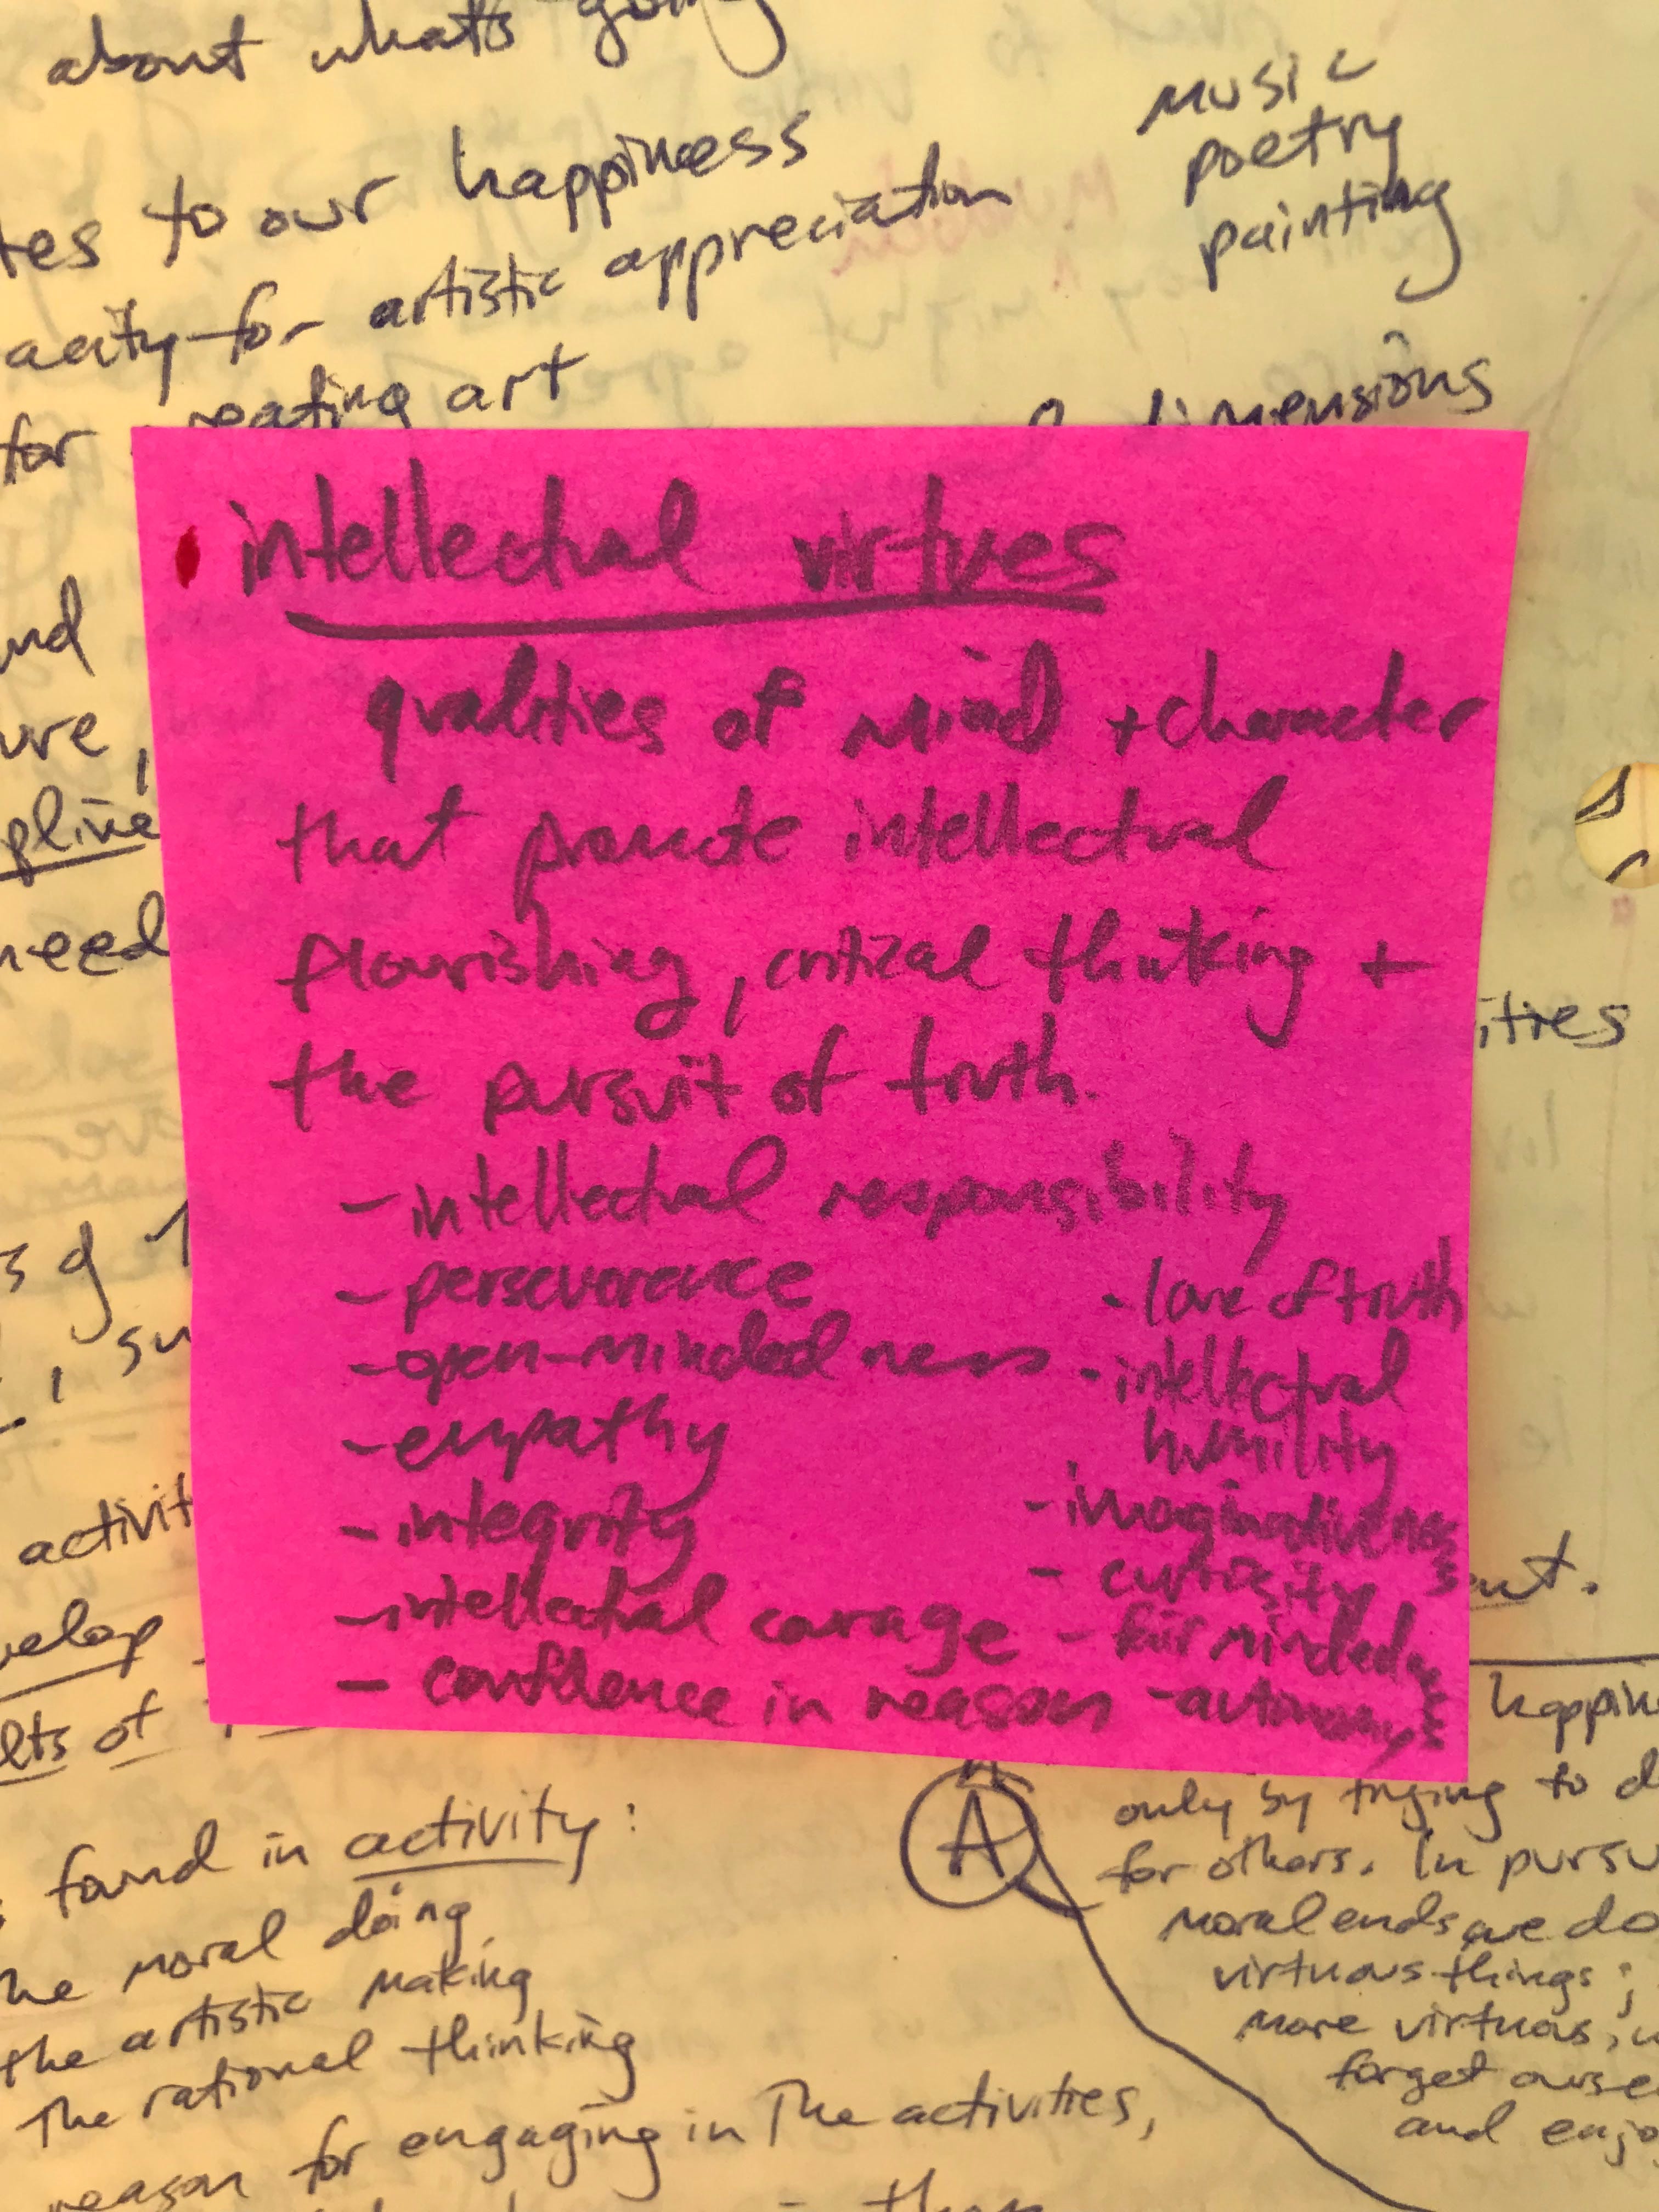 about whats going
tes to our happiness
acity for artistic appreciation
for creating art
music
poetry
painting
dimensions
intellectual virtues
qualities of mind + character
that promote intellectual
flourishing, critical thinking +
the pursuit of truth.
- intellectual responsibility
- perseverence
- open-mindedness
- empathy
- integrity
- intellectual courage
- confidence in reason
- love of truth
- intellectual
humility
- imaginativeness
- curiosity
- fair mindedness
- autonomy
nd
ure,
pline
need
ities
s of
, su
activit
velop
lts of
ent.
found in activity:
he moral doing
the artistic making
The rational thinking
reason for engaging in The activities,
A
happin
only by trying to d
for others. In pursu
moral ends we do
virtuous things;
more virtuous,
forget ourse
and enjo